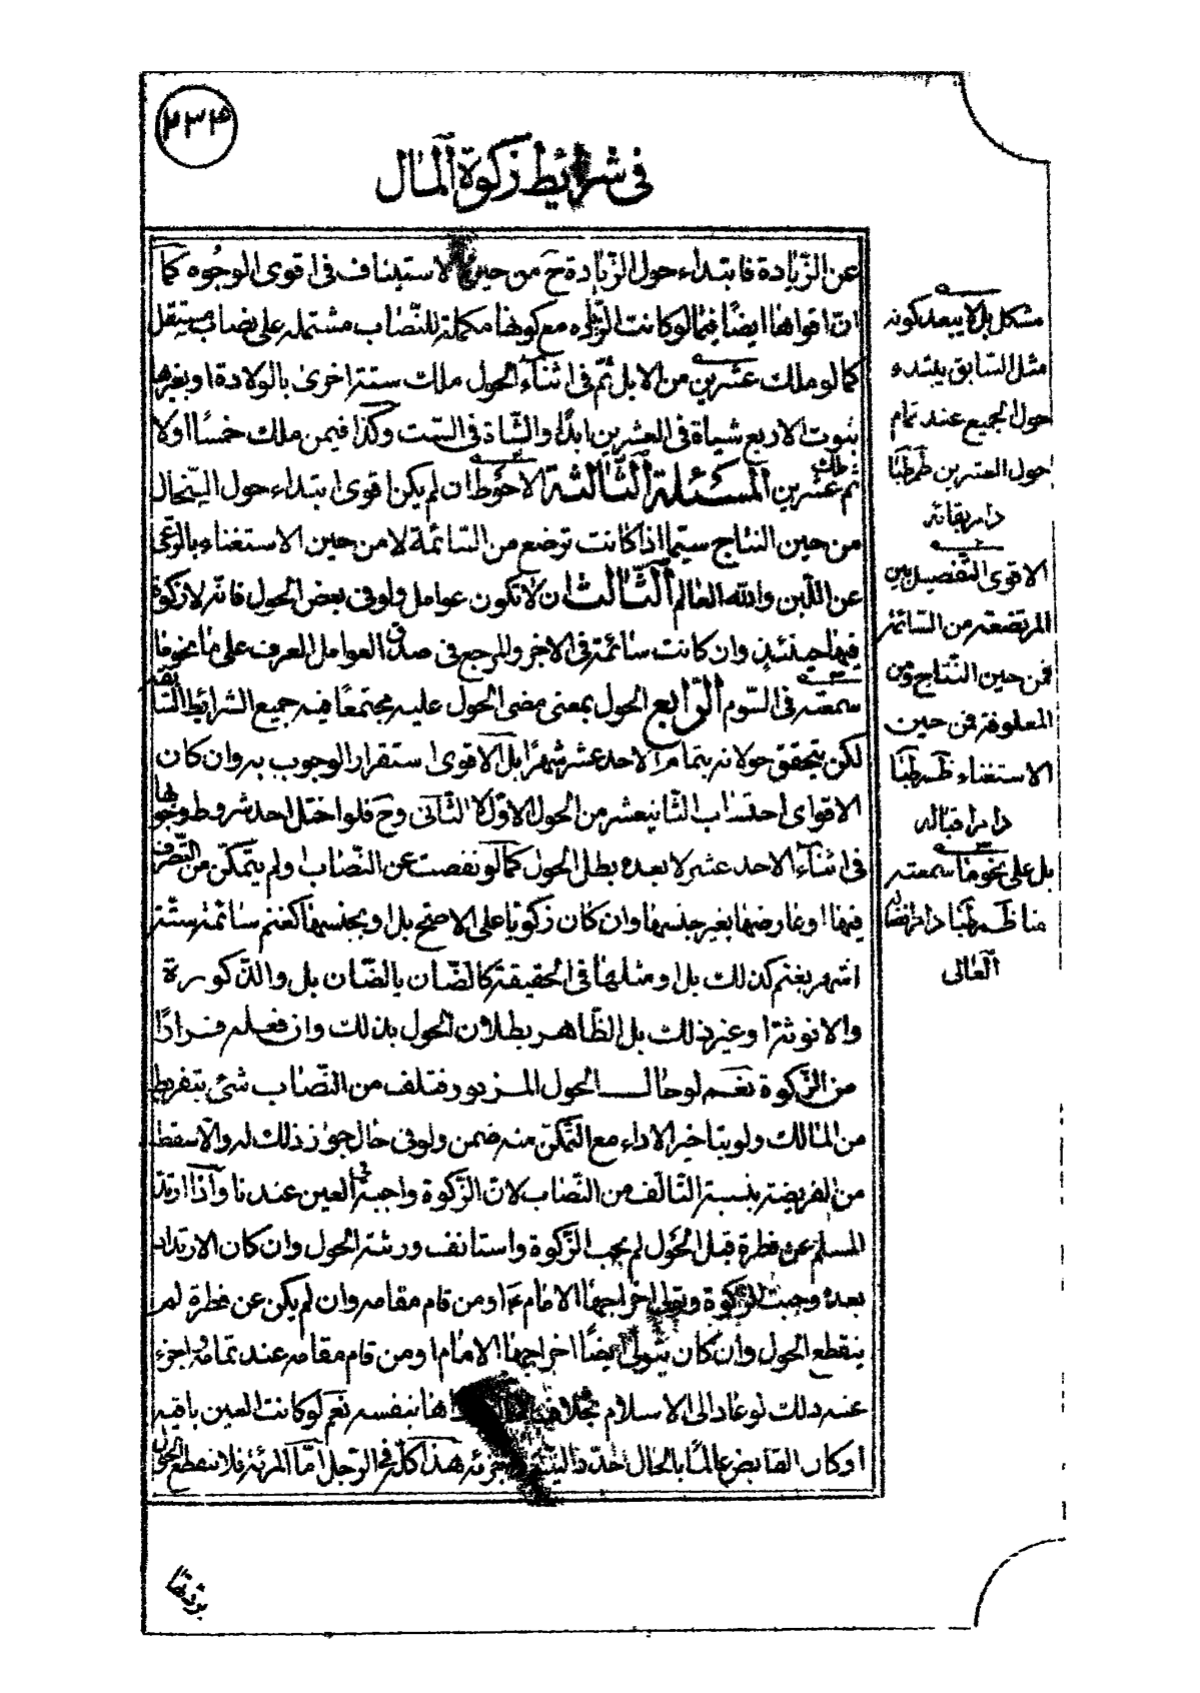 ٢٣٤
في شرايط زكوة المال
عن الزّيادة فابتداء حول الزّيادة ح من حين الاستيناف في اقوى الوجوه كما
انّ اقواها ايضًا فيما لو كانت الزّيادة مع كونها مكملة للنّصاب مشتملة على نصاب مستقل
كما لو ملك عشرين من الابل ثمّ في اثناء الحول ملك ستة اخرى بالولادة او بغيرها
ثبوت الاربع شياة في العشرين ابدًا والشّاة في السّت وكذا فيمن ملك خمسًا اولا
ثم ملك عشرين المسئلة الثّالثة الاحوط ان لم يكن اقوى ابتداء حول السّخال
من حين النتاج سيّما اذا كانت ترضع من السّائمة لا من حين الاستغناء بالرّعى
عن اللّبن والله العالم الثّالث ان لا تكون عوامل ولو في بعض الحول فانّه لا زكوة
فيها حينئذ وان كانت سائمة في الاخر والمرجع في صدق العوامل العرف على ما نحو ما
سمعته في السّوم الرّابع الحول بمعنى مضى الحول عليه مجتمعًا فيه جميع الشرائط السّابقة
لكن يتحقق حولانه بتمام الاحد عشر شهرًا بل الاقوى استقرار الوجوب به وان كان
الاقوى احتساب الثّانيعشر من الحول الاوّل لا الثّانى وح فلو اختل احد شروط وجوبها
في اثناء الاحد عشر لا بعده بطل الحول كما لو نقصت عن النّصاب ولم يتمكّن من التّصرف
فيها او عاوضها بغير جنسها وان كان زكويا على الاصح بل او بجنسها كغنم سائمة ستّة
اشهر بغنم كذلك بل او مثلها في الحقيقة كالضّان بالضّان بل والذّكورة
والانوثة او غير ذلك بل الظّاهر بطلان الحول بذلك وان فعله فرارًا
من الزّكوة نعم لو حال الحول المزبور فتلف من النّصاب شئ بتفريط
من المالك ولو بتاخير الاداء مع التّمكّن منه ضمن ولو في حال جواز ذلك له والّا سقط
من الفريضة بنسبة التّالف من النّصاب لانّ الزّكوة واجبة في العين عندنا واذا ارتدّ
المسلم عن فطرة قبل الحَول لم يجب الزّكوة واستانف ورثته الحول وان كان الارتداد
بعده وجبت الزّكوة ويتولى اخراجها الامام عَ او من قام مقامه وان لم يكن عن فطرة لم
ينقطع الحول وان كان يتولى ايضًا اخراجها الامام او من قام مقامه عند تمامه واجزء
عنه ذلك لو عاد الى الاسلام بخلاف اداها بنفسه نعم لو كانت العين باقية
او كان القابض عالمًا بالحال جدّد النّية هذا كلّه في الرّجل امّا المرئة فلا ينقطع الحول
مشكل بل لا يبعد كونه
مثل السّابق يبتدء
حول الجميع عند تمام
حول العشرين ظم طبا
دام بقائه
الاقوى التّفصيل بين
المرتضعة من السّائمة
فمن حين النّتاج ومن
المعلوفة فمن حين
الاستغناء ظم طبا
دام اقباله
بل على نحو ما سمعته
منا ظم طبا دام
العالى
بردّتها